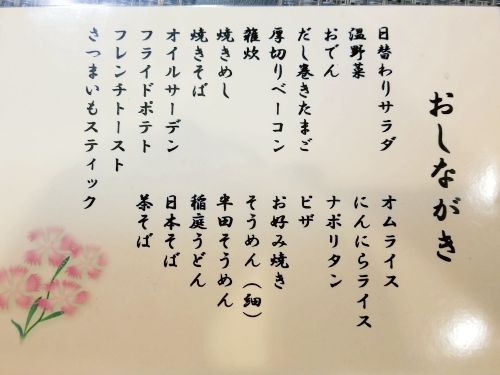 おしながき
日替わりサラダ
温野菜
おでん
だし巻きたまご
厚切りベーコン
雑炊
焼きめし
焼きそば
オイルサーデン
フライドポテト
フレンチトースト
さつまいもスティック
オムライス
にんにらライス
ナポリタン
ピザ
お好み焼き
そうめん（細）
半田そうめん
稲庭うどん
日本そば
茶そば